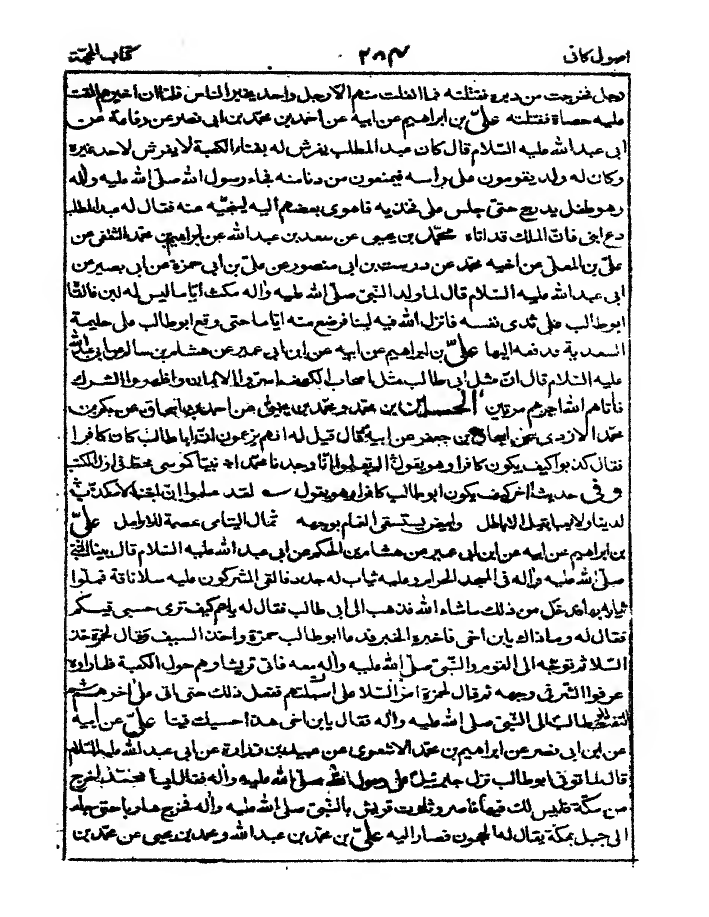 اصول كافى ٢٨٣ كتاب الحجّة
رجل فخرجت من دبره فقتلته فما انفلت منهم الا رجل واحد يخبر الناس فلما ان اخبرهم القت
عليه حصاة فقتلته علىّ بن ابراهيم عن ابيه عن احمد بن محمد بن ابى نصر عن رفاعة عن
ابى عبد الله عليه السّلام قال كان عبد المطلب يفرش له بفناء الكعبة لا يفرش لاحد غيره
وكان له ولد يقومون على راسه فيمنعون من دنا منه فجاء رسول الله صلّى الله عليه واله
وهو طفل يدرج حتى جلس على فخذيه فاهوى بعضهم اليه لينحيه عنه فقال له عبد المطلب
دع ابنى فان الملك قد اتاه محمّد بن يحيى عن سعد بن عبد الله عن ابراهيم بن محمّد الثقفى عن
علىّ بن المعلى عن اخيه محمّد عن درست بن ابى منصور عن علىّ بن ابى حمزة عن ابى بصير عن
ابى عبد الله عليه السّلام قال لما ولد النبىّ صلى الله عليه واله مكث ايّاما ليس له لبن فالقاه
ابو طالب على ثدى نفسه فانزل الله فيه لبنا فرضع منه اياما حتى وقع ابو طالب على حليمة
السعدية فدفعه اليها علىّ بن ابراهيم عن ابيه عن ابن ابى عمير عن هشام بن سالم عن ابى عبد الله
عليه السّلام قال انّ مثل ابى طالب مثل اصحاب الكهف اسرّوا الايمان واظهروا الشرك
فاتاهم الله اجرهم مرتين الحسين بن محمّد ومحمّد بن يحيى عن احمد بن اسحاق عن بكر بن
محمّد الازدى عن اسحاق بن جعفر عن ابيه قال قيل له انهم يزعمون ان ابا طالب كان كافرا
فقال كذبوا كيف يكون كافرا وهو يقول الم تعلموا انا وجدنا محمّدا نبيّا كموسى خطّ فى اول الكتب
وفى حديث اخر كيف يكون ابو طالب كافرا وهو يقول لقد علموا ان ابننا لا مكذّب
لدينا ولا يعبأ بقيل الاباطل وابيض يستسقى الغمام بوجهه ثمال اليتامى عصمة للارامل علىّ
بن ابراهيم عن ابيه عن ابن ابى عمير عن هشام بن الحكم عن ابى عبد الله عليه السّلام قال بينا النبىّ
صلى الله عليه واله فى المسجد الحرام وعليه ثياب له جدد فالقى المشركون عليه سلا ناقة فملوا
ثيابه بها فدخله من ذلك ما شاء الله فذهب الى ابى طالب فقال له يا عم كيف ترى حسبى فيكم
فقال له وما ذاك يا بن اخى فاخبره الخبر فدعا ابو طالب حمزة واخذ السيف وقال لحمزة خذ
السّلا ثم توجّه الى القوم والنّبى صلّى الله عليه واله معه فاتى قريشا وهم حول الكعبة فلما راوه
عرفوا الشرّ فى وجهه ثم قال لحمزة امرّ السّلا على اسبلتهم ففعل ذلك حتى اتى على اخرهم ثم
التفت ابو طالب الى النّبىّ صلى الله عليه واله فقال يا بن اخى هذا حسبك فينا علىّ عن ابيه
عن ابن ابى نصر عن ابراهيم بن محمّد الاشعرى عن عبيد بن زرارة عن ابى عبد الله عليه السّلام
قال لما توفى ابو طالب نزل جبرئيل على رسول الله صلى الله عليه واله فقال يا محمّد اخرج
من مكّة فليس لك فيها ناصر وثارت قريش بالنّبىّ صلى الله عليه واله فخرج هاربا حتى جاء
الى جبل بمكة يقال له الحجون فصار اليه علىّ بن محمّد بن عبد الله ومحمد بن يحيى عن محمّد بن